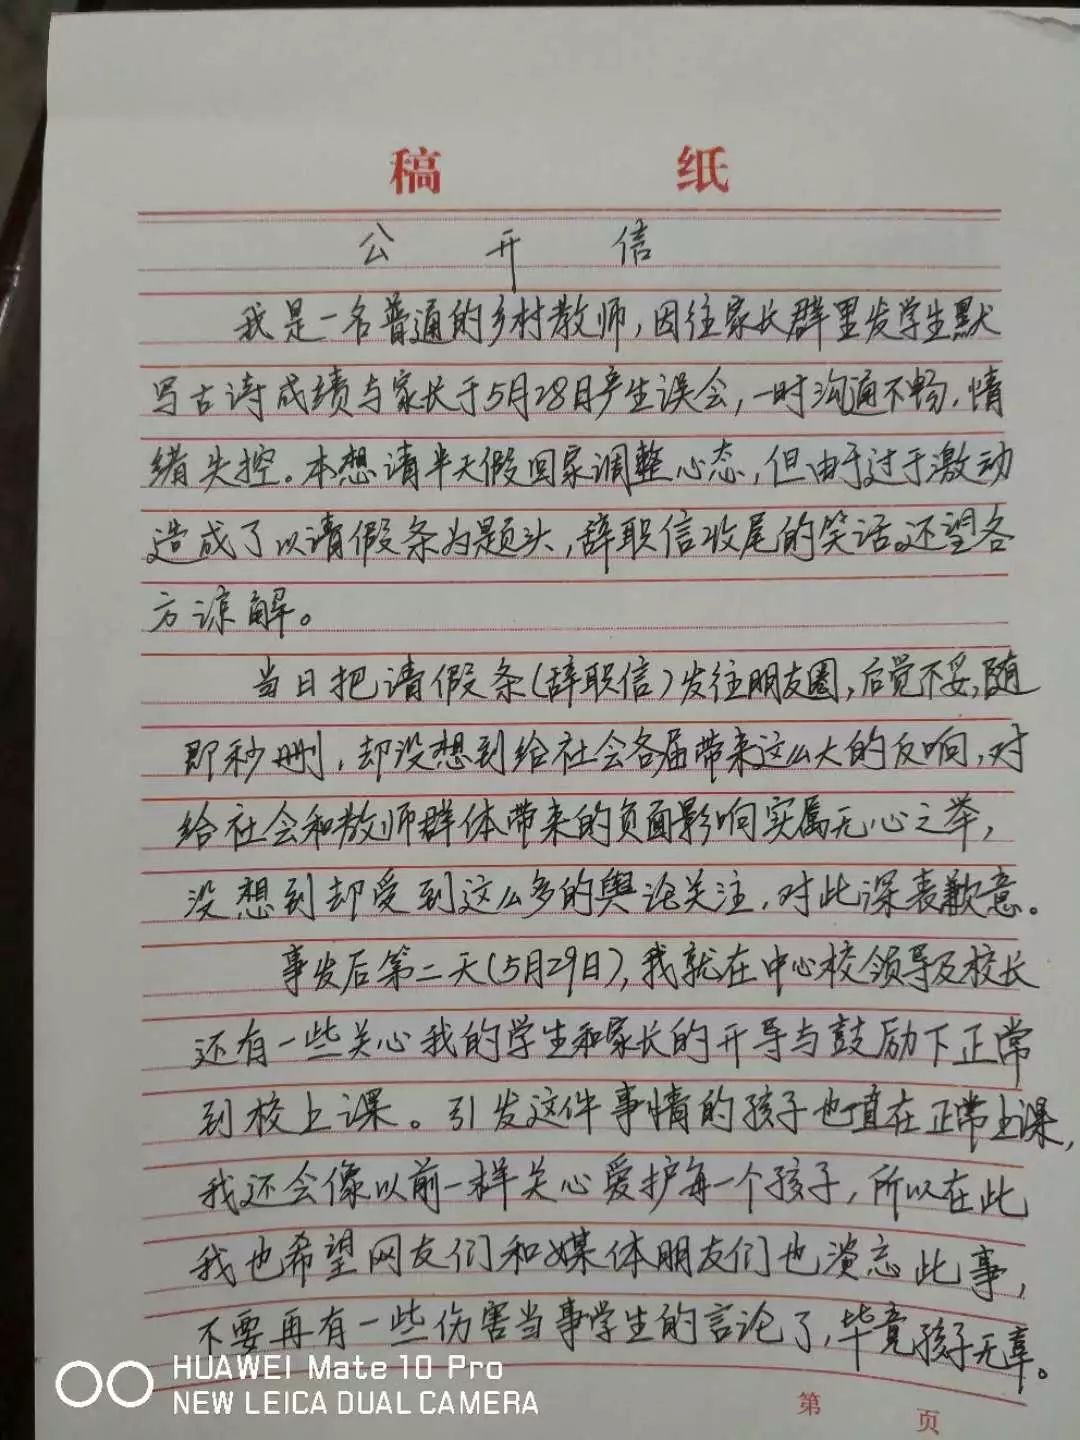 稿 纸
公开信
我是一名普通的乡村教师,因往家长群里发学生默
写古诗成绩与家长于5月28日产生误会,一时沟通不畅,情
绪失控。本想请半天假回家调整心态,但由于过于激动
造成了以请假条为题头,辞职信收尾的笑话。还望各
方谅解。
当日把请假条(辞职信)发往朋友圈,后觉不妥,随
即秒删,却没想到给社会各届带来这么大的反响,对
给社会和教师群体带来的负面影响实属无心之举,
没想到却受到这么多的舆论关注,对此深表歉意。
事发后第二天(5月29日),我就在中心校领导及校长
还有一些关心我的学生和家长的开导与鼓励下正常
到校上课。引发这件事情的孩子也一直在正常上课,
我还会像以前一样关心爱护每一个孩子,所以在此
我也希望网友们和媒体朋友们也淡忘此事,
不要再有一些伤害当事学生的言论了,毕竟孩子无辜。
第 页
HUAWEI Mate 10 Pro
NEW LEICA DUAL CAMERA